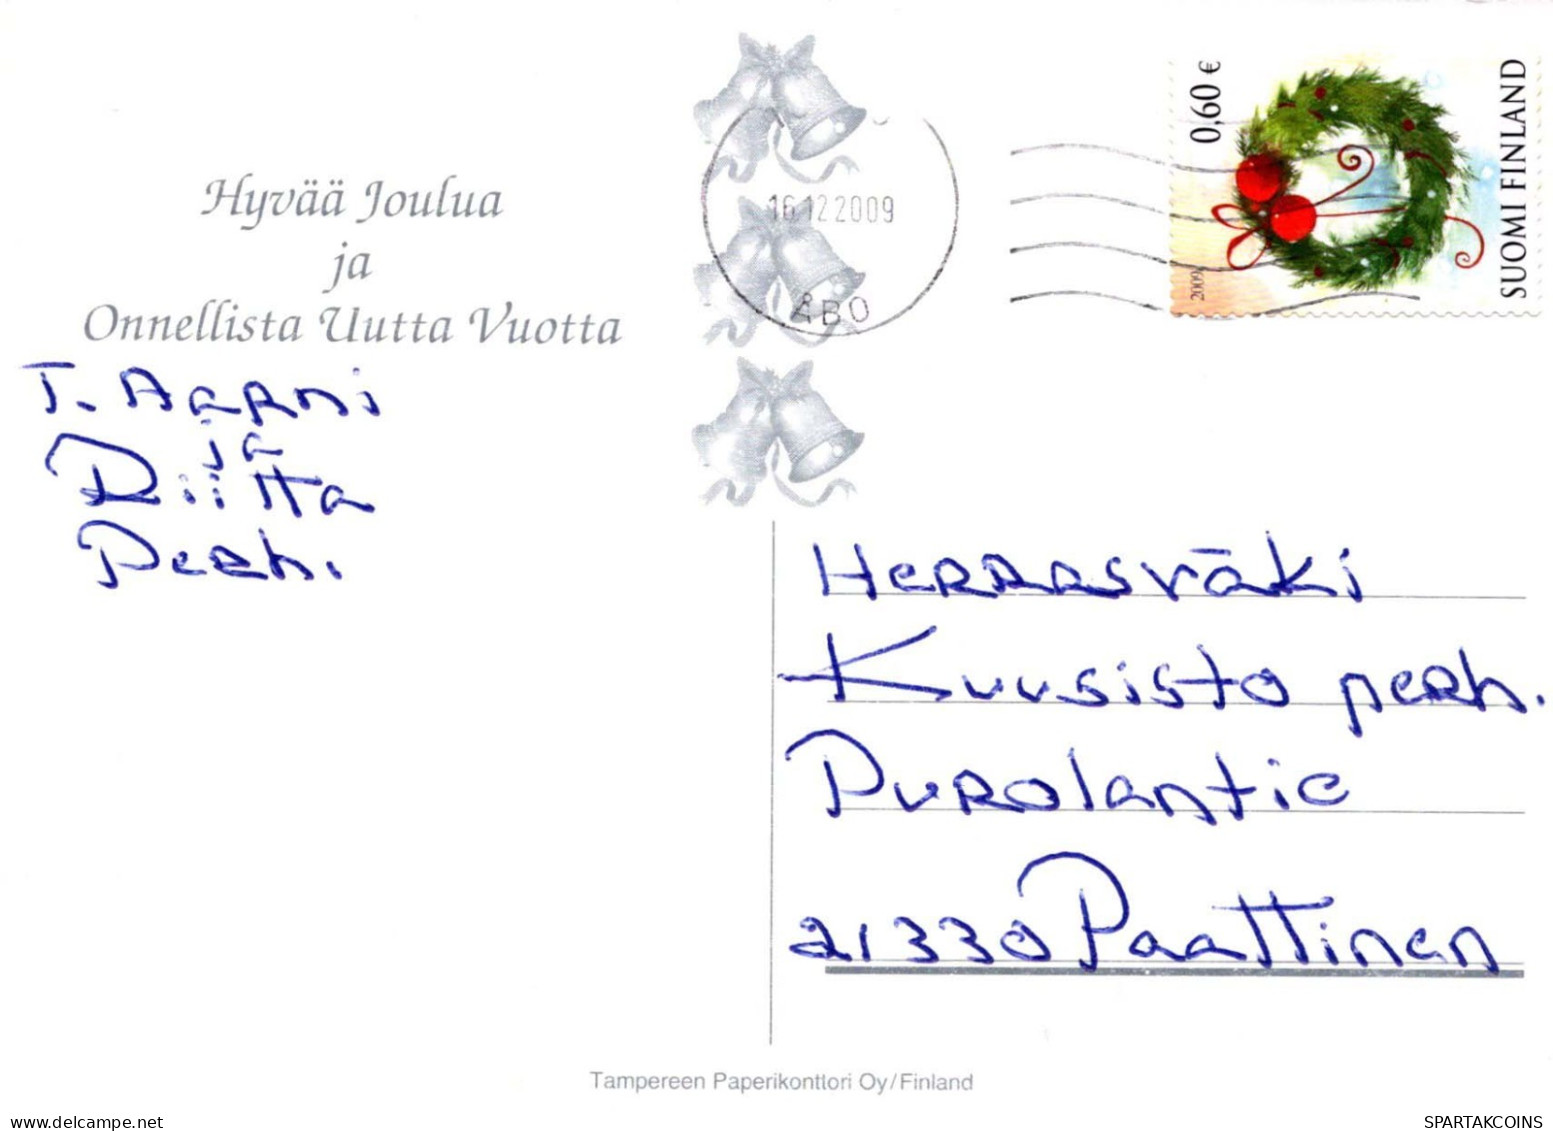 Hyvää Joulua
ja
Onnellista Uutta Vuotta
T. Aarni
ja
Riitta
Perh.
16.12.2009
ÅBO
0,60 €
2009
SUOMI FINLAND
Herrasväki
Kuusisto perh.
Purolantie
21330 Paattinen
Tampereen Paperikonttori Oy/Finland
www.delcampe.net
SPARTAKCOINS